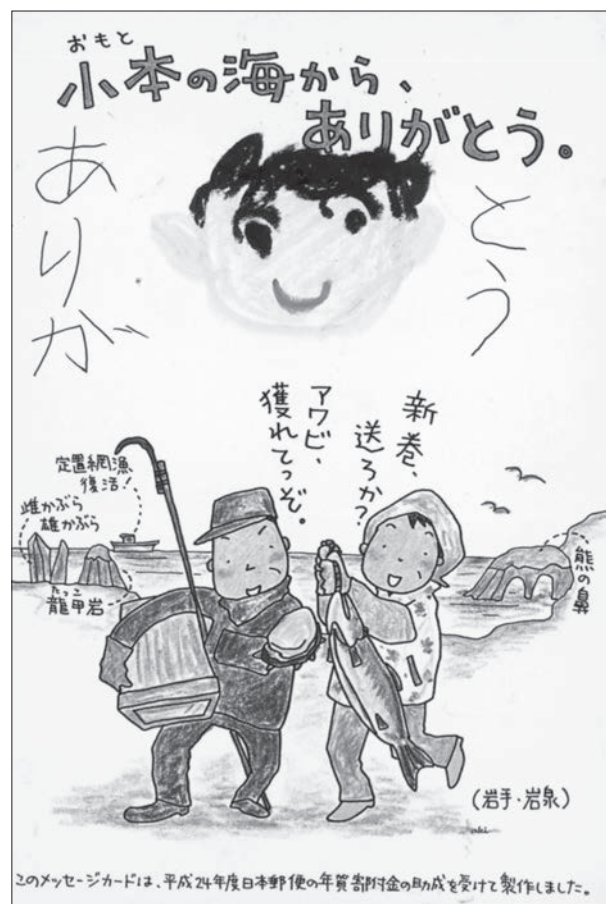 おもと
小本の海から、
ありがとう。
ありが
とう
新巻、
送ろか?
アワビ、
獲れてっぞ。
定置網漁
復活!
雌かぶら
雄かぶら
たっこ
龍甲岩
熊の鼻
(岩手・岩泉)
aki
このメッセージカードは、平成24年度日本郵便の年賀寄附金の助成を受けて製作しました。